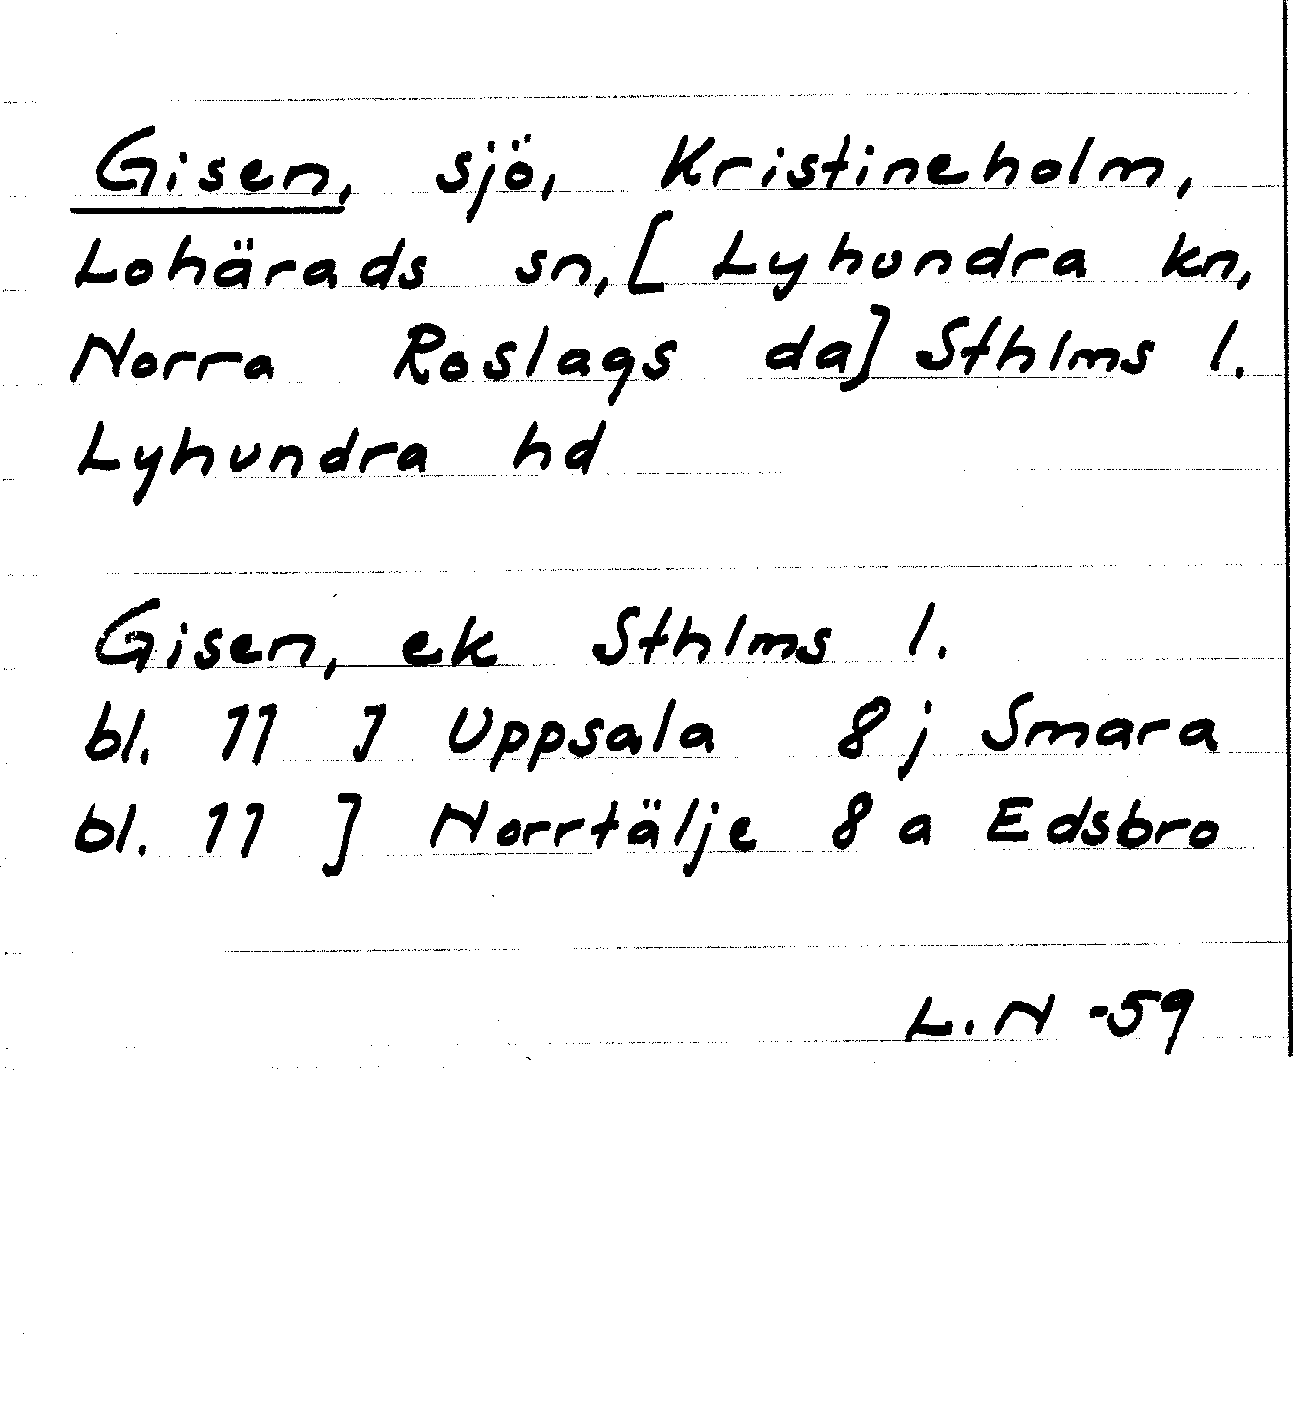 Gisen, sjö, Kristineholm,
Lohärads sn, [ Lyhundra kn,
Norra Roslags da] Sthlms l.
Lyhundra hd
Gisen, ek Sthlms l.
bl. 11 J Uppsala 8 j Smara
bl. 11 J Norrtälje 8 a Edsbro
L. N -59